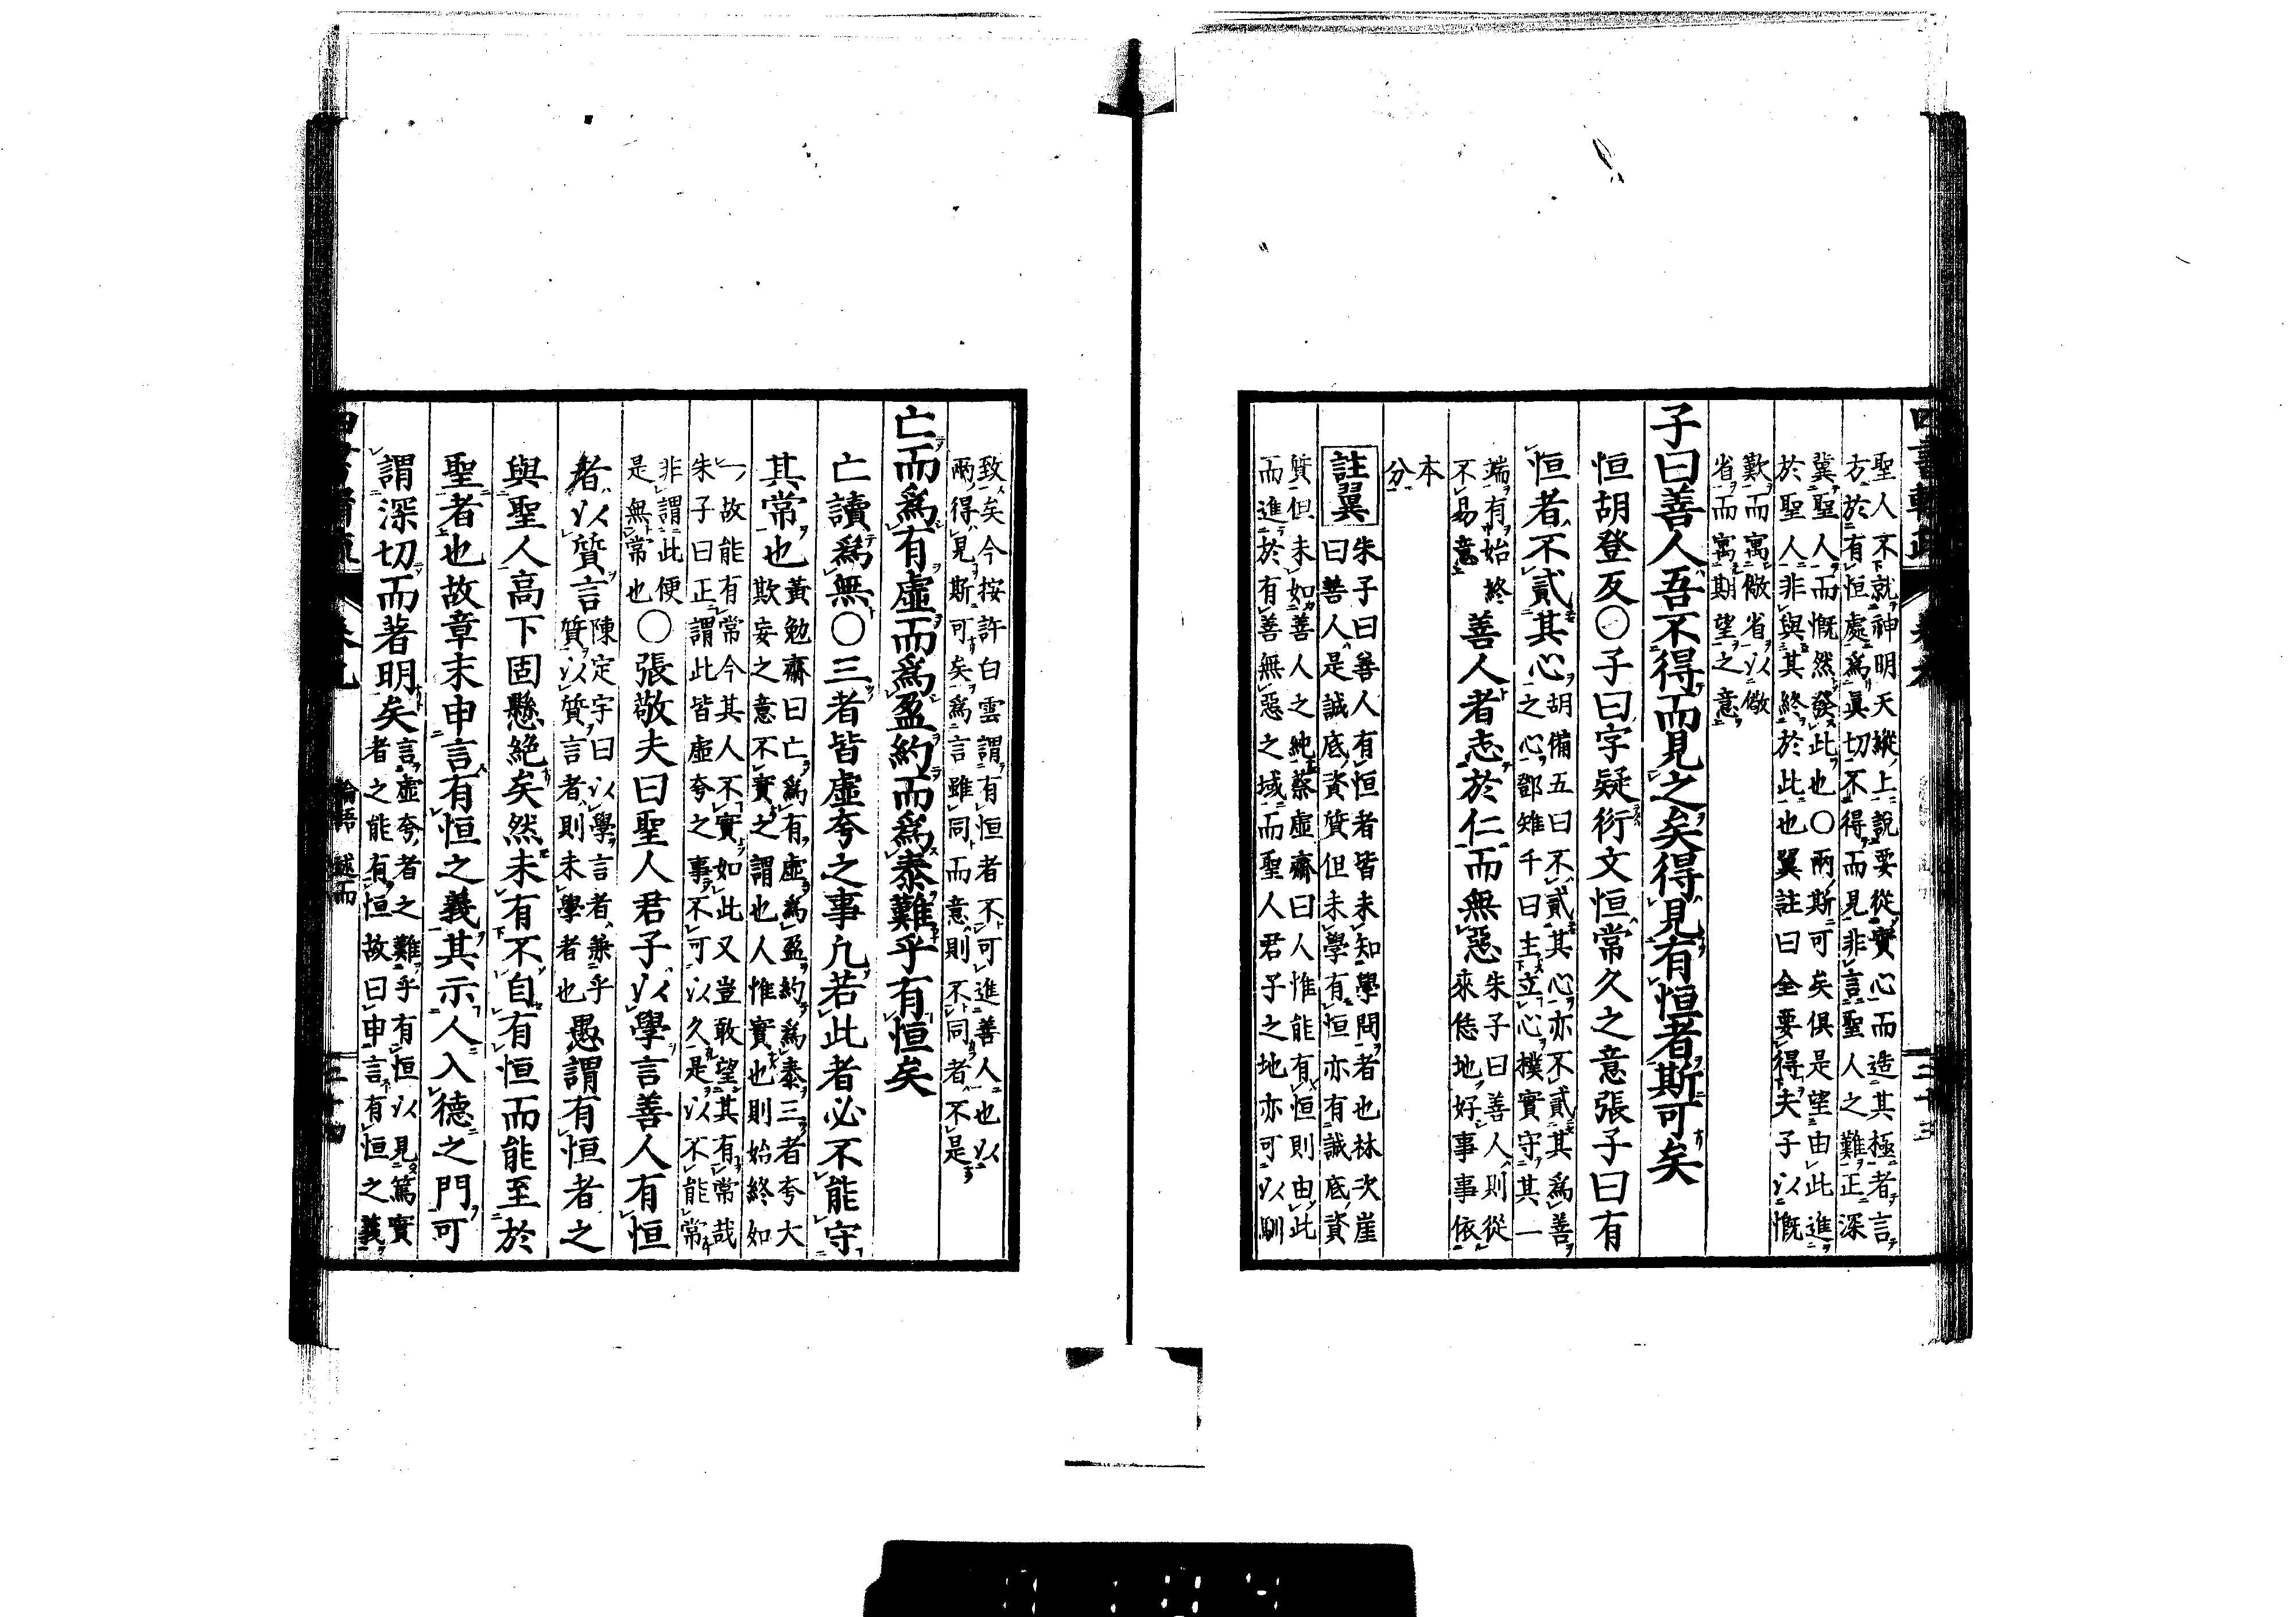 聖人不就神明天縱上說要從實心而造其極者言
方於有恒處爲眞切不得而見非言聖人之難正深
冀聖人而慨然發此也〇兩斯可矣俱是望由此進
於聖人非與其終於此也翼註曰全要得夫子以慨
歎而寓儆省以儆
省而寓期望之意
子曰善人吾不得而見之矣得見有恒者斯可矣
恒胡登反〇子曰字疑衍文恒常久之意張子曰有
恒者不貳其心
胡備五曰不貳其心亦不貳其爲善
之心鄧雉千曰主立心撲實守其一
端有始終
不易意
善人者志於仁而無惡
朱子曰善人則從
來恁地好事事依
本
分
註翼
朱子曰善人有恒者皆未知學問者也林次崖
曰善人是誠底資質但未學有恒亦有誠底資
質但未如善人之純蔡虛齋曰人惟能有恒則由此
而進於有善無惡之域而聖人君子之地亦可以馴
致矣今按許白雲謂有恒者不可進善人也以
兩得見斯可矣爲言雖同而意則不同者不是
亡而爲有虛而爲盈約而爲泰難乎有恒矣
亡讀爲無〇三者皆虛夸之事凢若此者必不能守
其常也
黃勉齋曰亡爲有虛爲盈約爲泰三者夸大
欺妄之意不實之謂也人惟實也則始終如
一故能有常今其人不實如此又豈敢望其有常哉
朱子曰正謂此皆虛夸之事不可以久是以不能常
非謂此便
是無常也
〇張敬夫曰聖人君子以學言善人有恒
者以質言
陳定宇曰以學言者兼乎
質以質言者則未學者也
愚謂有恒者之
與聖人高下固懸絕矣然未有不自有恒而能至於
聖者也故章末申言有恒之義其示人入德之門可
謂深切而著明矣
言虛夸者之難乎有恒以見篤實
者之能有恒故曰申言有恒之義
論語 述而